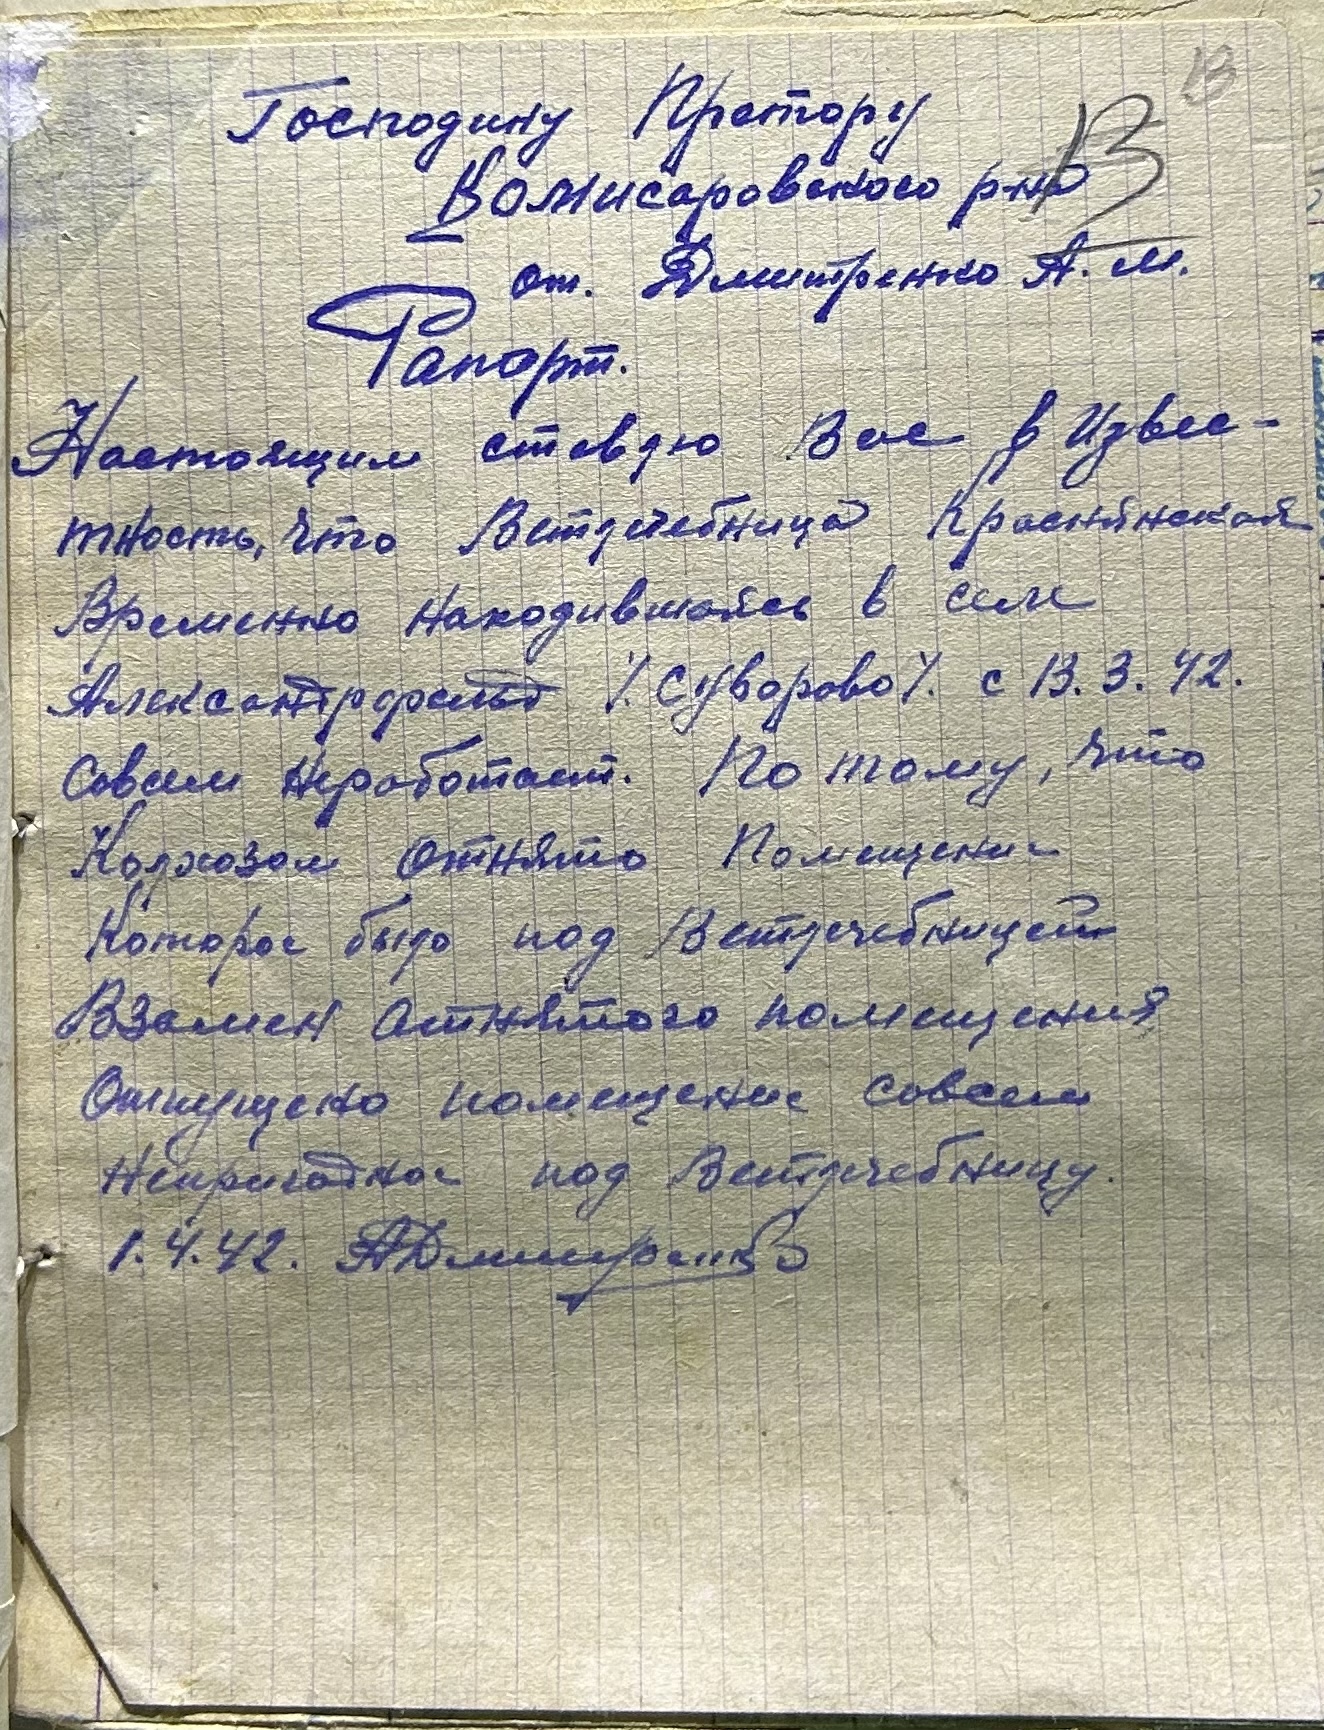 13
13
Господину Претору
Комисаровского р-на
от. Дмитренко А. М.
Рапорт.
Настоящим ставлю Вас в Извес-
тность, что Ветлечебница Краснянская
Временно находившаяся в селе
Александрфельд /. Суворово /. с 13. 3. 42.
совсем неработает. По тому, что
Колхозом отнято Помещение
Которое было под Ветлечебницей
Взамен отнятого помещения
Отпущено помещение совсем
Непригодное под Ветлечебницу.
1. 4. 42. АДмитренко